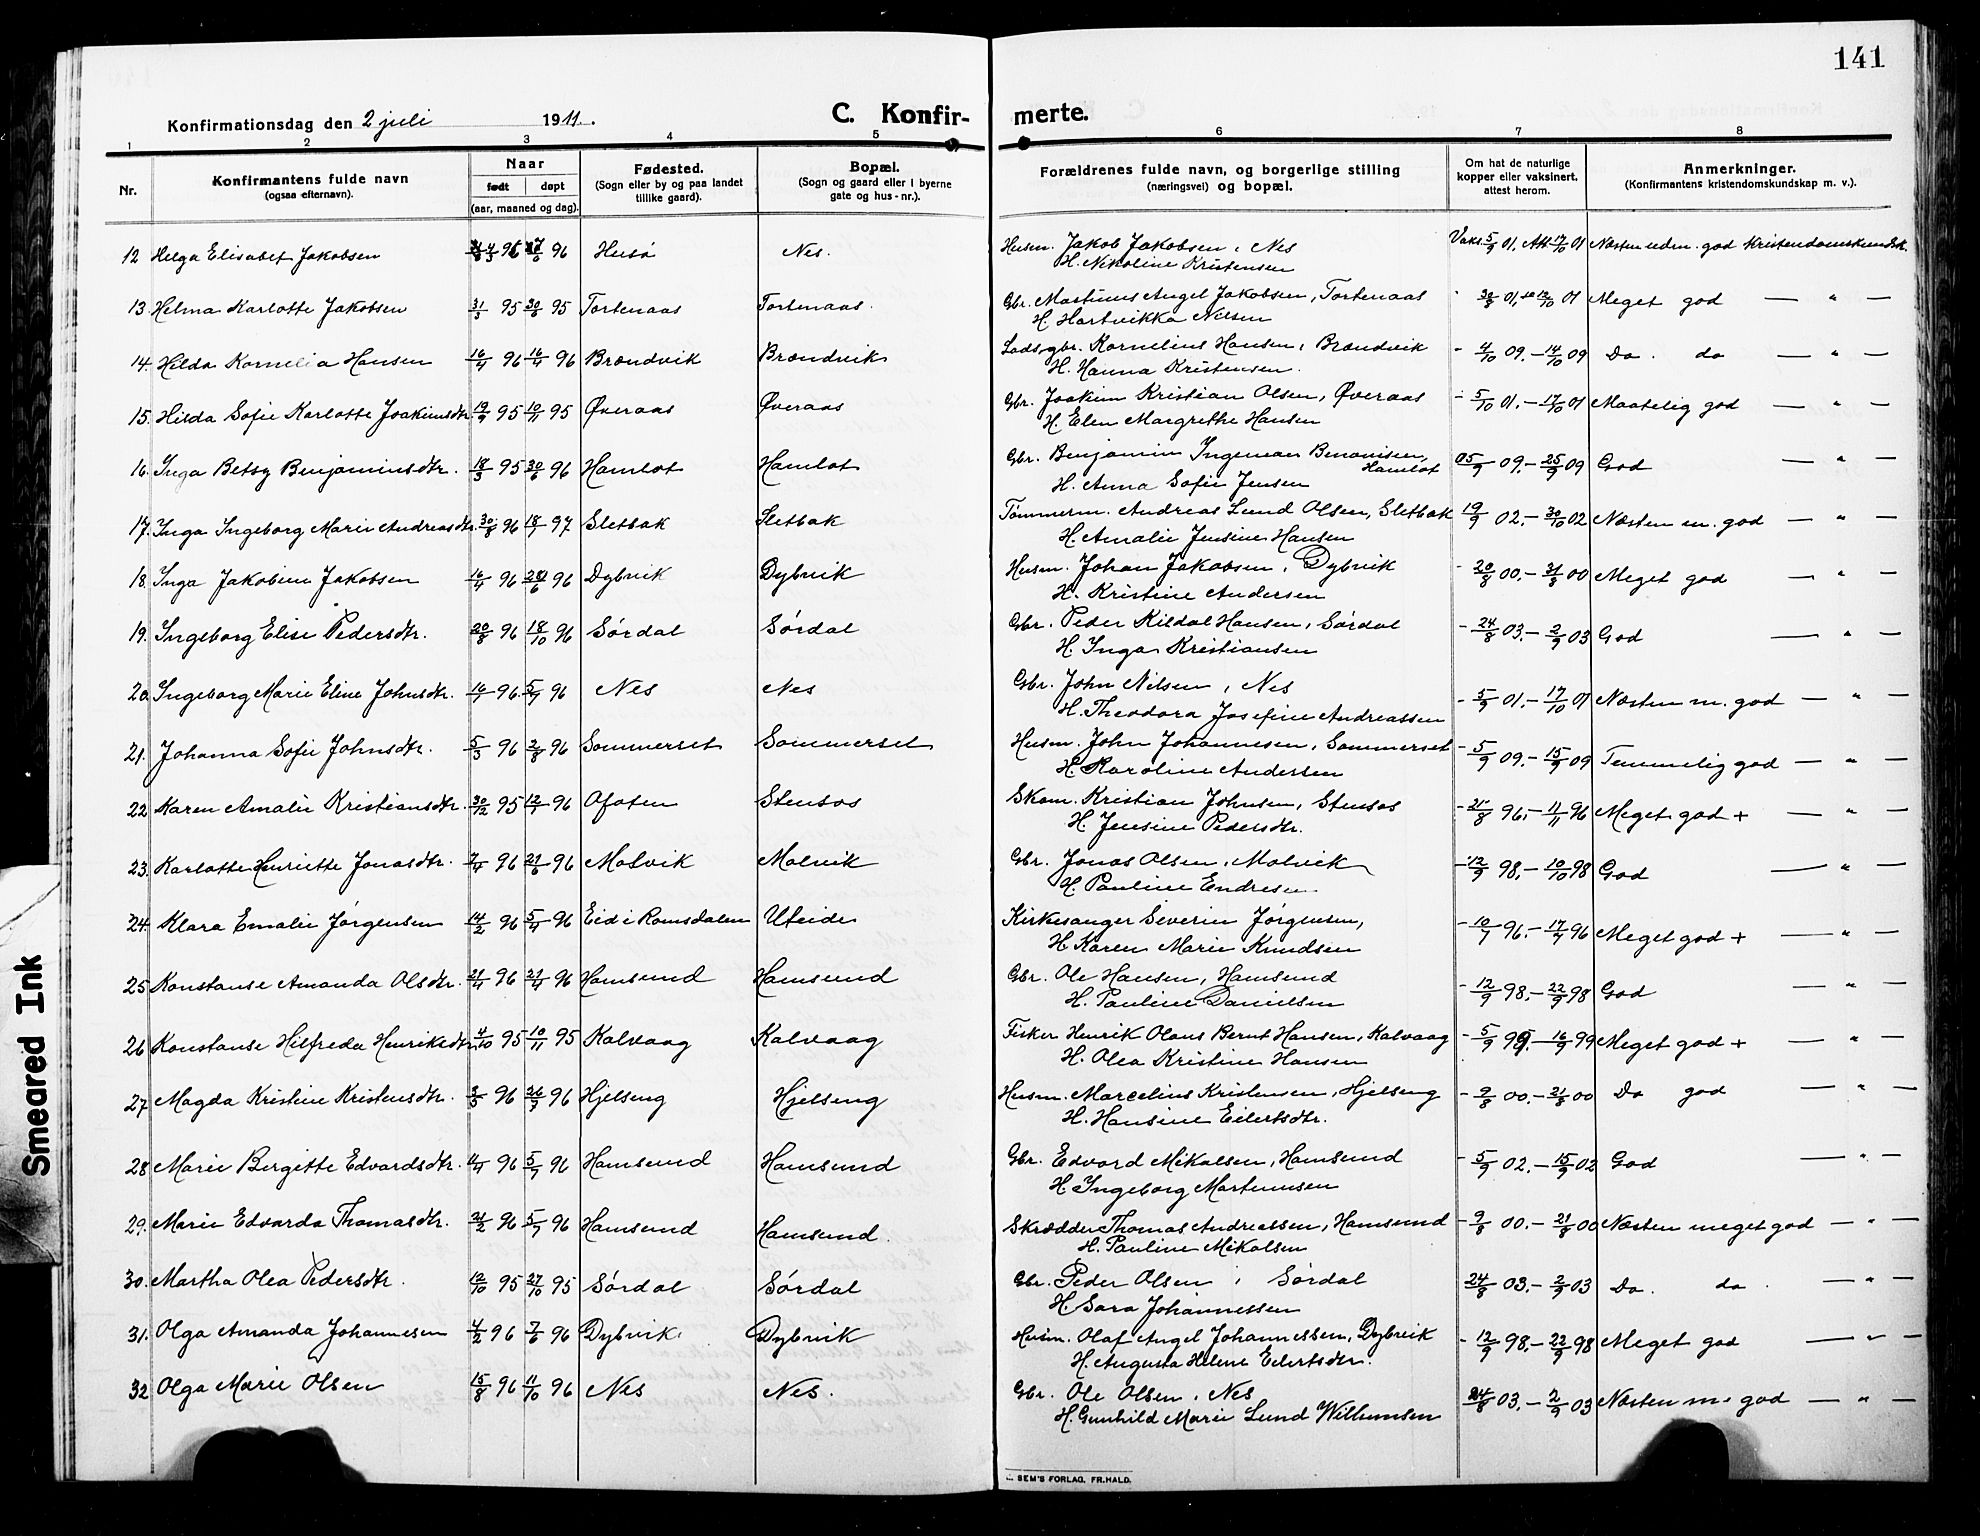 141
Konfirmationsdag den 2 juli 1911.
C. Konfir-
merte.
1 2 3 4 5 6 7 8
Nr.
Konfirmantens fulde navn
(ogsaa efternavn).
Naar
født døpt
(aar, maaned og dag).
Fødested.
(Sogn eller by og paa landet
tillike gaard).
Bopæl.
(Sogn og gaard eller i byerne
gate og hus-nr.).
Forældrenes fulde navn, og borgerlige stilling
(næringsvei) og bopæl.
Om hat de naturlige
kopper eller vaksinert.
attest herom.
Anmerkninger.
(Konfirmantens kristendomskundskap m. v.).
12 Helga Elisabet Jakobsen 96 96 Husø Nes. Husm. Jakob Jakobsen, Nes Vaks. 5/9 01, Att. 17/10 01 Næsten udm. god Kristendomskundsk.
H. Nikoline Kristensen
13. Helma Karlotte Jakobsen 31/3 95 30/6 95 Tortenaas Tortenaas. Gbr. Martinus Angel Jakobsen, Tortenaas 01 Meget god — " —
H. Hartvikka Nilsen
14. Hilda Kornelia Hansen 16/4 96 16/4 96 Brændvik Brændvik Kornelius Hansen, Brændvik - 4/10 09. - 14/10 09 Do. do — " —
H. Hanna Kristensen.
15. Hilda Sofie Karlotte Joakimsdtr. 19/9 95 10/11 95 Øveraas Øveraas Gbr. Joakim Kristian Olsen, Øveraas - 5/10 01. - 17/10 01 Maatelig god — " —
H. Elen Margrethe Hansen
16. Inga Betsy Benjaminsdtr. 18/3 95 30/6 96 Hamlot Hamlot Gbr. Benjamin Ingeman Benonisen, 09. - 25/9 09 God — " —
Hamlot
H. Anna Sofie Jensen
17. Inga Ingeborg Marie Andreasdtr. 30/8 96 18/7 97 Sletbak Sletbak Tømmerm. Andreas Lund Olsen, Sletbak 19/9 02. - 30/10 02 Næsten m. god — " —
H. Amalie Jensine Hansen
18. Inga Jakobine Jakobsen 16/4 96 96 Dybvik Dybvik Husm. Johan Jakobsen, Dybvik - 20/8 00. - 31/8 00 Meget god — " —
H. Kristine Andersen
19. Ingeborg Elise Pedersdtr. 20/8 96 18/10 96 Sørdal Sørdal Gbr. Peder Kildal Hansen, Sørdal - 24/8 03. - 2/9 03 God — " —
H. Inga Kristiansen
20. Ingeborg Marie Eline Johnsdtr. 96 5/7 96 Nes Nes Gbr. John Nilsen, Nes - 5/9 01. - 17/10 01 Næsten m. god — " —
H. Theodora Josefine Andreassen
21. Johanna Sofie Johnsdtr. 5/3 96 2/8 96 Sommerset Sommerset Husm. John Johannesen, Sommerset - 5/9 09. - 15/9 09 Temmelig god — " —
H. Karoline Andersen
22 Karen Amalie Kristiansdtr. 30/12 95 12/7 96 Ofoten Stensos Skom. Kristian Johnsen, Stensos - 21/8 96. - 11/11 96 Meget god + — " —
H. Jensine Pedersdtr.
23. Karlotte Henriette Jonasdtr. 7/4 96 21/6 96 Molvik Molvik Gbr. Jonas Olsen, Molvik - 12/9 98. - 10/10 98 God — " —
H. Pauline Endresen
24. Klara Emalie Jørgensen 14/2 96 5/4 96 Eid i Romsdalen Uteide Kirkesanger Severin Jørgensen, - 10/7 96. - 17/7 96 Meget god + — " —
H. Karen Marie Knudsen
25 Konstanse Amanda Olsdtr. 21/4 96 21/4 96 Hamsund Hamsund Gbr. Ole Hansen, Hamsund - 12/9 98. - 22/9 98 God — " —
H. Pauline Danielsen
26 Konstanse Hilfreda Henriksdtr. 4/10 95 10/11 95 Kalvaag Kalvaag Fisker Henrik Olaus Bernt Hansen, Kalvaag - 5/9 99. - 16/9 99 Meget god + — " —
H. Olea Kristine Hansen
27 Magda Kristine Kristensdtr. 3/5 96 26/7 96 Hjelseng Hjelseng Husm. Marcelius Kristensen, Hjelseng - 9/8 00. - 21/8 00 Do god — " —
H. Hansine Eilertsdtr.
28 Marie Bergitte Edvardsdtr. 96 5/7 96 Hamsund Hamsund Gbr. Edvard Mikalsen, Hamsund - 5/9 02. - 15/9 02 God — " —
H. Ingeborg Martinusen
29. Marie Edvarda Thomasdtr. 21/2 96 5/7 96 Hamsund Hamsund. Skrædder Thomas Andreassen, Hamsund - 9/8 00. - 21/8 00 Næsten meget god — " —
H. Pauline Mikalsen
30. Martha Olea Pedersdtr. 12/10 95 27/10 95 Sørdal Sørdal Gbr. Peder Olsen, Sørdal 24/8 03. - 2/9 03 Do. do. — " —
H. Sara Johannessen
31. Olga Amanda Johannesen 4/2 96 7/6 96 Dybvik Dybvik Husm. Olaf Angel Johannessen, Dybvik - 12/9 98. - 22/9 98 Meget god — " —
H. Augusta Helene Eilertsdtr.
32 Olga Marie Olsen 15/8 96 11/10 96 Nes Nes. Gbr. Ole Olsen, Nes 24/8 03. - 2/9 03 Næsten m. god — " —
H. Gunhild Marie Lund Wilhumsen
SEM'S FORLAG, FR.HALD.
Smeared Ink